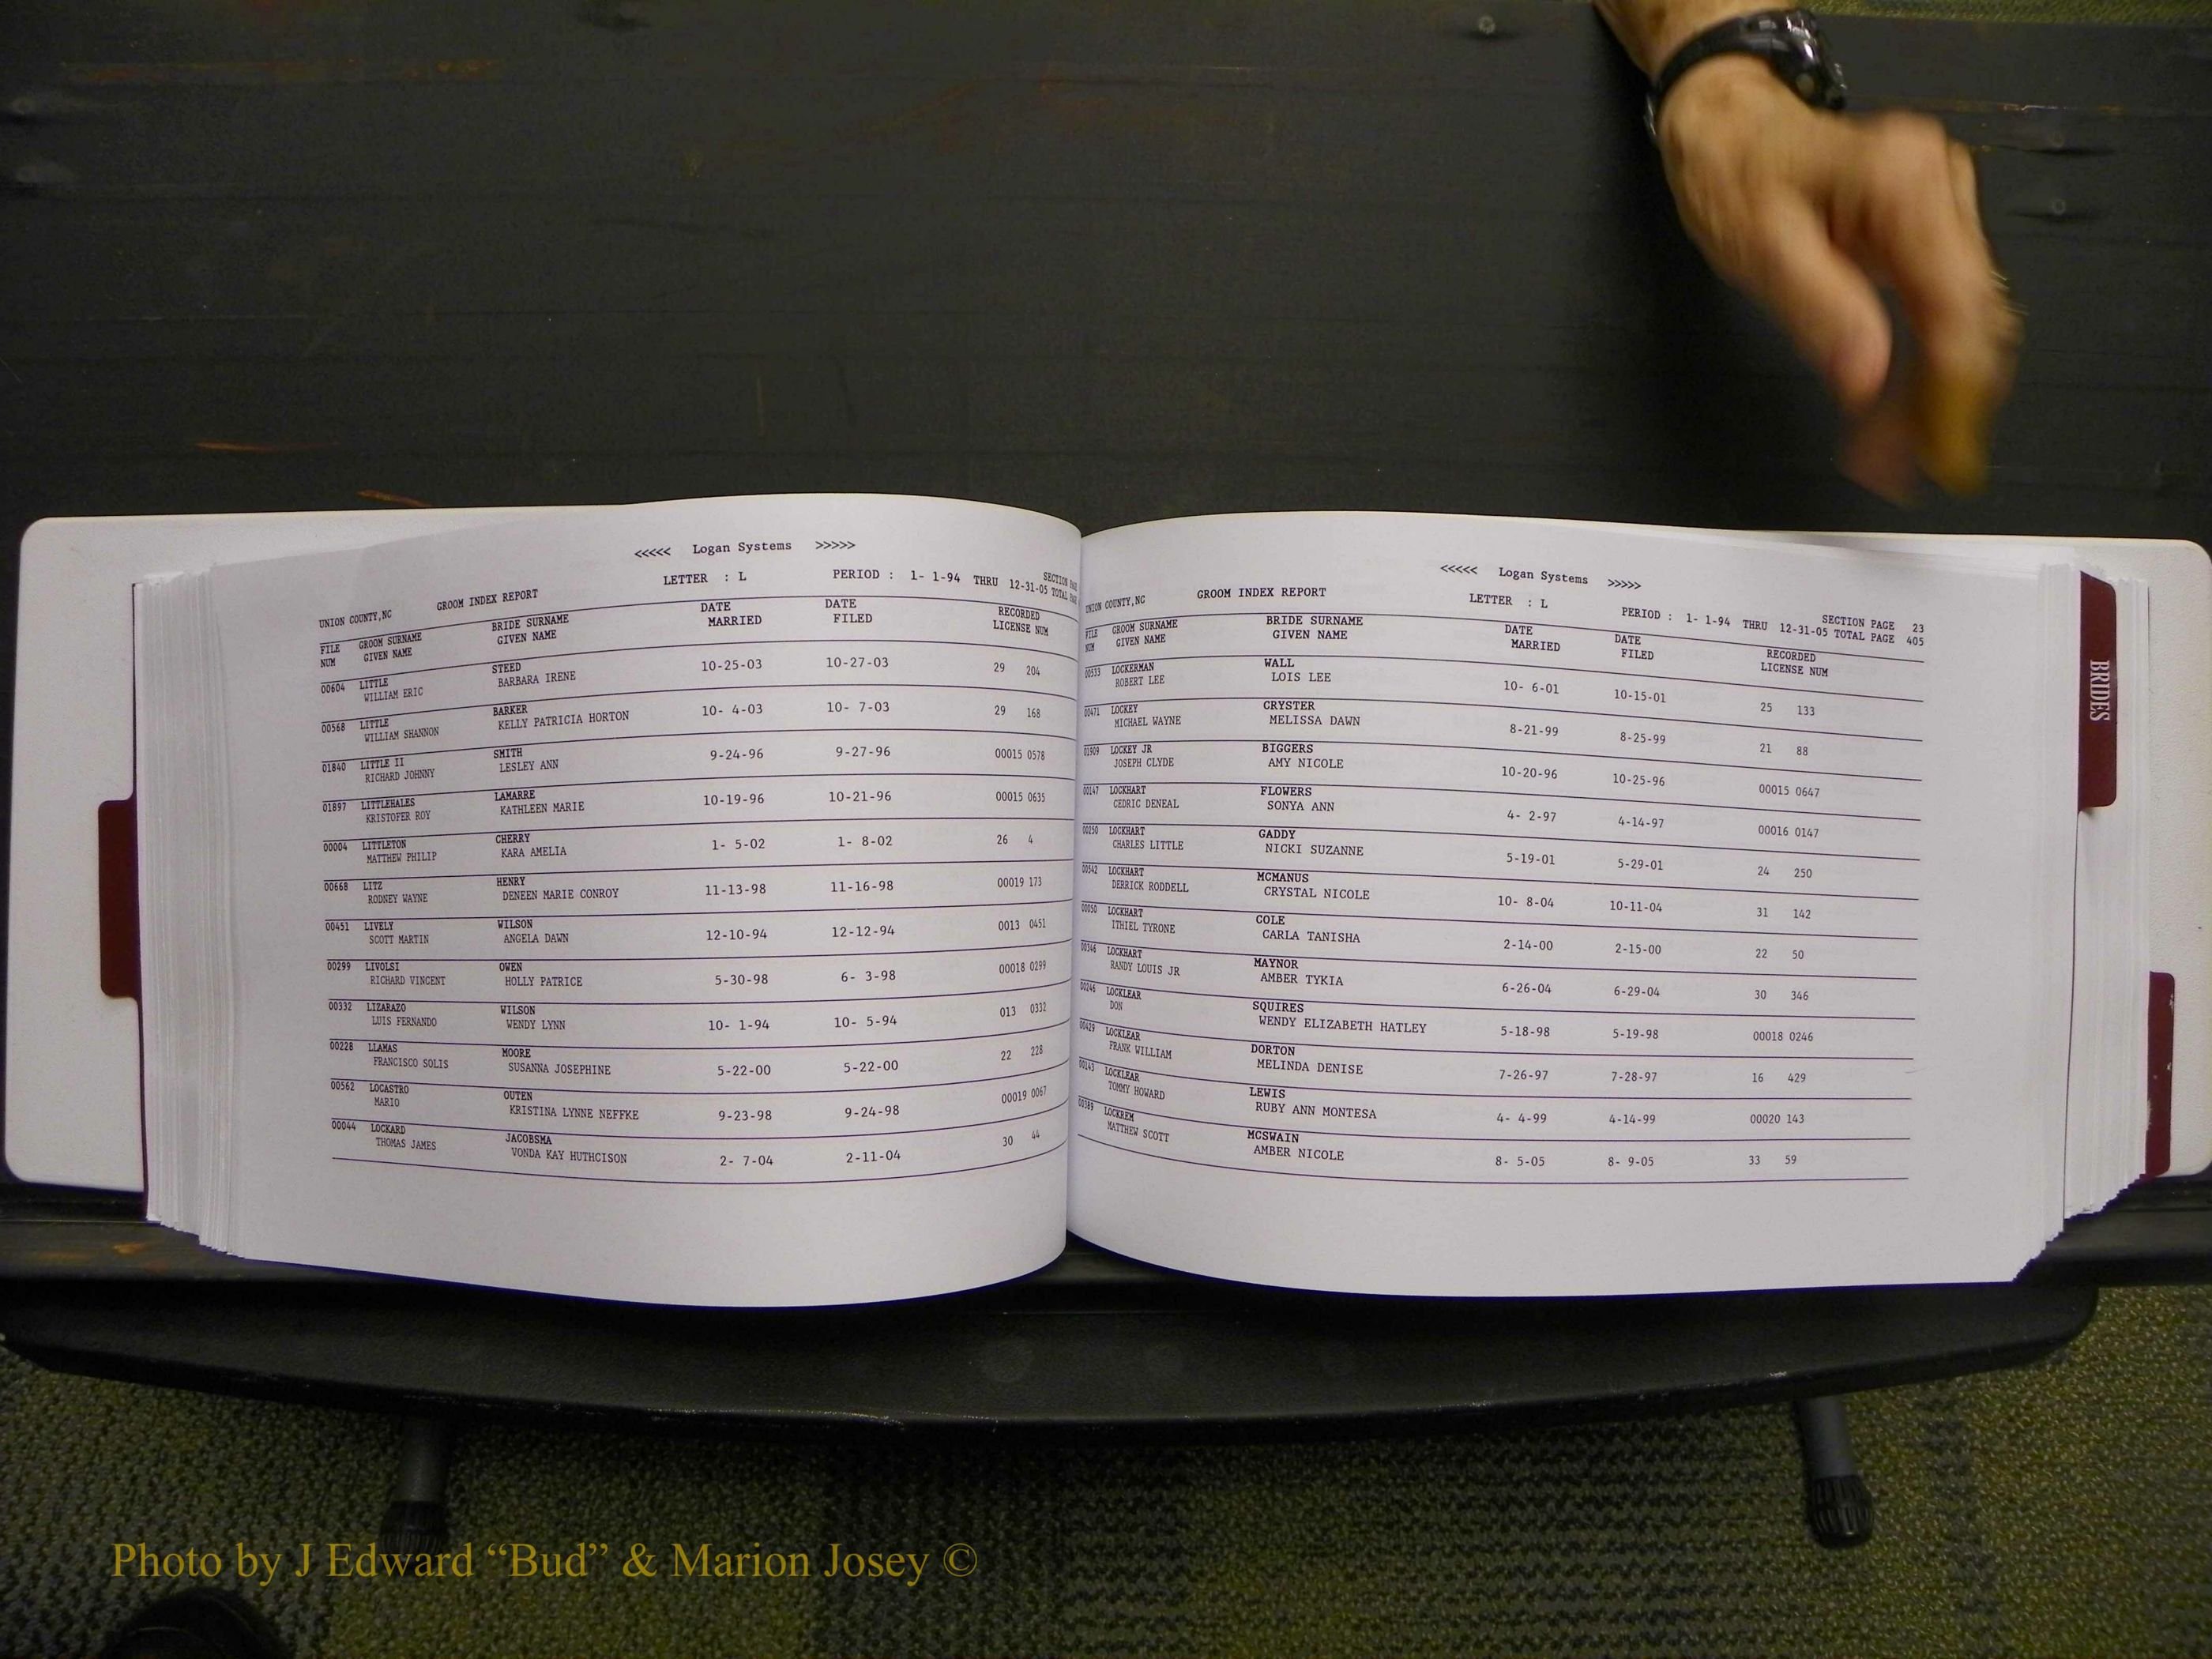 <<<<< Logan Systems >>>>>
LETTER : L PERIOD : 1- 1-94 THRU 12-31-05 SECTION
TOTAL
UNION COUNTY,NC GROOM INDEX REPORT
FILE GROOM SURNAME BRIDE SURNAME DATE DATE RECORDED
NUM GIVEN NAME GIVEN NAME MARRIED FILED LICENSE NUM
00604 LITTLE STEED 10-25-03 10-27-03 29 204
WILLIAM ERIC BARBARA IRENE
00568 LITTLE BARKER 10- 4-03 10- 7-03 29 168
WILLIAM SHANNON KELLY PATRICIA HORTON
01840 LITTLE II SMITH 9-24-96 9-27-96 00015 0578
RICHARD JOHNNY LESLEY ANN
01897 LITTLEHALES LAMARRE 10-19-96 10-21-96 00015 0635
KRISTOFER ROY KATHLEEN MARIE
00004 LITTLETON CHERRY 1- 5-02 1- 8-02 26 4
MATTHEW PHILIP KARA AMELIA
00668 LITZ HENRY 11-13-98 11-16-98 00019 173
RODNEY WAYNE DENEEN MARIE CONROY
00451 LIVELY WILSON 12-10-94 12-12-94 0013 0451
SCOTT MARTIN ANGELA DAWN
00299 LIVOLSI OWEN 5-30-98 6- 3-98 00018 0299
RICHARD VINCENT HOLLY PATRICE
00332 LIZARAZO WILSON 10- 1-94 10- 5-94 013 0332
LUIS FERNANDO WENDY LYNN
00228 LLAMAS MOORE 5-22-00 5-22-00 22 228
FRANCISCO SOLIS SUSANNA JOSEPHINE
00562 LOCASTRO OUTEN 9-23-98 9-24-98 00019 0067
MARIO KRISTINA LYNNE NEFFKE
00044 LOCKARD JACOBSMA 2- 7-04 2-11-04 30 44
THOMAS JAMES VONDA KAY HUTHCISON
<<<<< Logan Systems >>>>>
UNION COUNTY,NC GROOM INDEX REPORT LETTER : L PERIOD : 1- 1-94 THRU 12-31-05 SECTION PAGE 23
TOTAL PAGE 405
FILE GROOM SURNAME BRIDE SURNAME DATE DATE RECORDED
NUM GIVEN NAME GIVEN NAME MARRIED FILED LICENSE NUM
00533 LOCKERMAN WALL 10- 6-01 10-15-01 25 133
ROBERT LEE LOIS LEE
00471 LOCKEY CRYSTER 8-21-99 8-25-99 21 88
MICHAEL WAYNE MELISSA DAWN
01909 LOCKEY JR BIGGERS 10-20-96 10-25-96 00015 0647
JOSEPH CLYDE AMY NICOLE
00147 LOCKHART FLOWERS 4- 2-97 4-14-97 00016 0147
CEDRIC DENEAL SONYA ANN
00250 LOCKHART GADDY 5-19-01 5-29-01 24 250
CHARLES LITTLE NICKI SUZANNE
00542 LOCKHART MCMANUS 10- 8-04 10-11-04 31 142
DERRICK RODDELL CRYSTAL NICOLE
00050 LOCKHART COLE 2-14-00 2-15-00 22 50
ITHIEL TYRONE CARLA TANISHA
00346 LOCKHART MAYNOR 6-26-04 6-29-04 30 346
RANDY LOUIS JR AMBER TYKIA
00246 LOCKLEAR SQUIRES 5-18-98 5-19-98 00018 0246
DON WENDY ELIZABETH HATLEY
00429 LOCKLEAR DORTON 7-26-97 7-28-97 16 429
FRANK WILLIAM MELINDA DENISE
00143 LOCKLEAR LEWIS 4- 4-99 4-14-99 00020 143
TOMMY HOWARD RUBY ANN MONTESA
00389 LOCKREM MCSWAIN 8- 5-05 8- 9-05 33 59
MATTHEW SCOTT AMBER NICOLE
BRIDES
Photo by J Edward “Bud” & Marion Josey ©